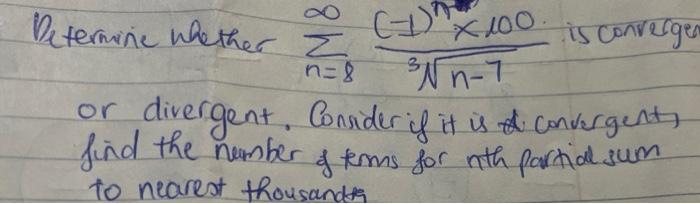 Determine whether ∞ Σ n=8 (-1)^n × 100 / ³√n-7 is converge
or divergent. Consider if it is convergent,
find the number of terms for nth partial sum
to nearest thousandth